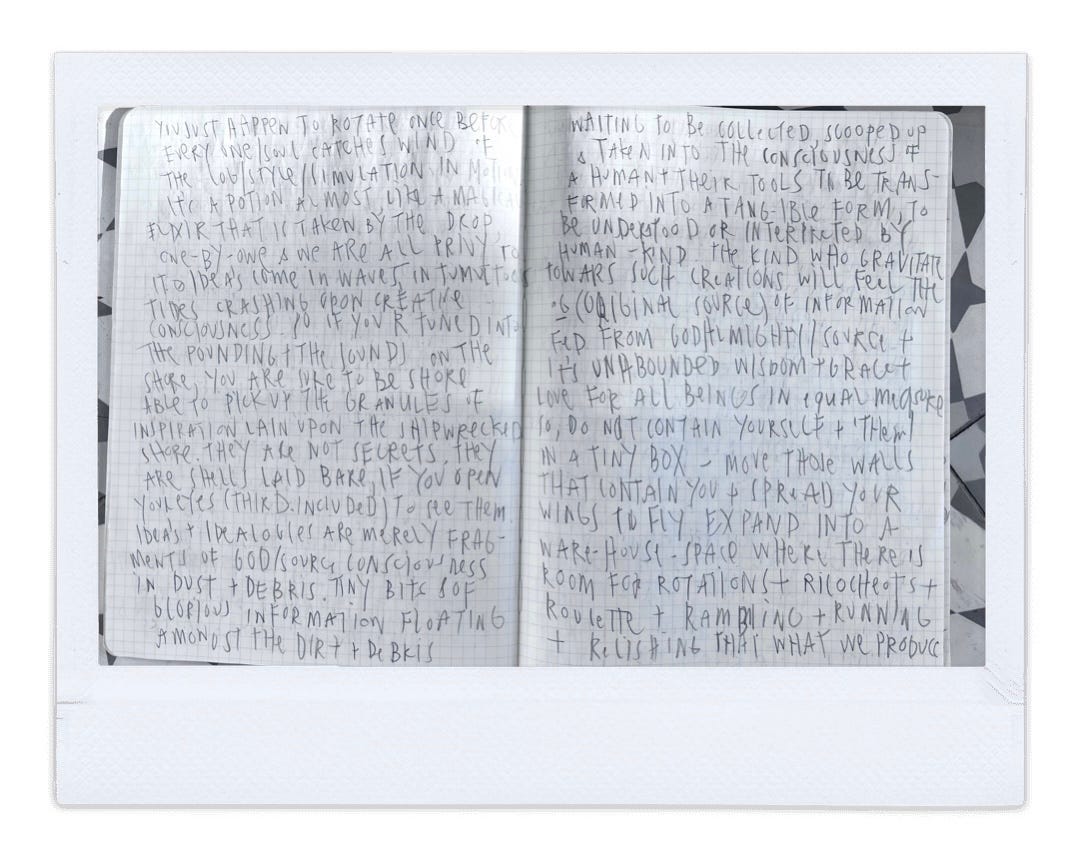 YOU JUST HAPPEN TO ROTATE ONCE BEFORE
EVERY ONE/SOUL CATCHES WIND OF
THE STYLE/SIMULATION IN MOTION
IT'S A POTION ALMOST LIKE A MAGICAL
ELIXIR THAT IS TAKEN BY THE DROP,
ONE-BY-ONE & WE ARE ALL PRIVY TO
IT IDEAS COME IN WAVES, IN
TIDES CRASHING UPON CREATIVE
CONSCIOUSNESS. SO IF YOU'R TUNED INTO
THE POUNDING + THE SOUNDS ON THE
SHORE, YOU ARE SURE TO BE SHORE
ABLE TO PICK UP THE GRANULES OF
INSPIRATION LAIN UPON THE SHIPWRECKED
SHORE. THEY ARE NOT SECRETS, THEY
ARE SHELLS LAID BARE, IF YOU OPEN
YOUR EYES (THIRD.INCLUDED) TO SEE THEM.
IDEAS + IDEALOGIES ARE MERELY FRAG-
MENTS OF GOD/SOURCE CONSCIOUSNESS
IN DUST + DEBRIS. TINY BITS OF
GLORIOUS INFORMATION FLOATING
AMONGST THE DIRT + DEBRIS
WAITING TO BE COLLECTED, SCOOPED UP
& TAKEN INTO THE CONSCIOUSNESS OF
A HUMAN + THEIR TOOLS TO BE TRANS-
FORMED INTO A TANG-IBLE FORM, TO
BE UNDERSTOOD OR INTERPRETED BY
HUMAN-KIND. THE KIND WHO GRAVITATE
TOWARS SUCH CREATIONS WILL FEEL THE
OG (ORIGINAL SOURCE) OF INFORMATION
FED FROM GOD/ALMIGHTY/SOURCE +
IT'S UNABOUNDED WISDOM + GRACE +
LOVE FOR ALL BEINGS IN equal measure
SO, DO NOT CONTAIN YOURSELF + 'THEM'
IN A TINY BOX - MOVE THOSE WALLS
THAT CONTAIN YOU + SPREAD YOUR
WINGS TO FLY. EXPAND INTO A
WARE-HOUSE-SPACE WHERE THERE IS
ROOM FOR ROTATIONS + RICOCHEOTS +
ROULETTE + RAMBLING + RUNNING
+ RELISHING THAT WHAT WE PRODUCE